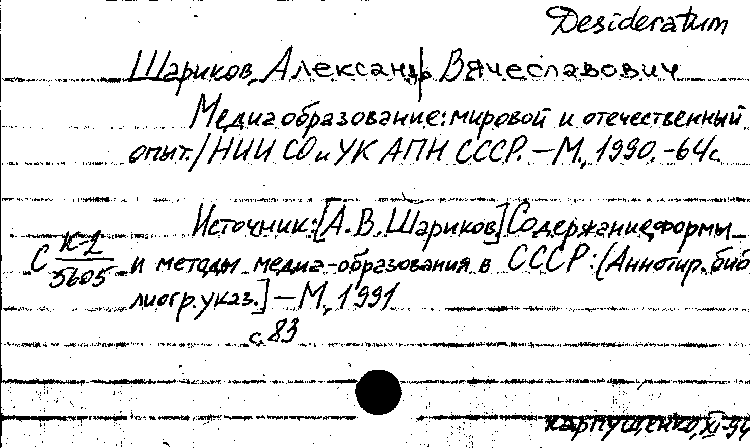 Desideratum
Шариков, Александр Вячеславович
Медиаобразование: мировой и отечественный
опыт. / НИИ СО и УК АПН СССР. — М., 1990. - 64 с.
Источник: [А. В. Шариков] Содержание, формы
С К-2/5605 и методы медиа-образования в СССР: [Аннотир. биб
лиогр. указ.] — М., 1991
с. 83
Карпущенко, XI-94